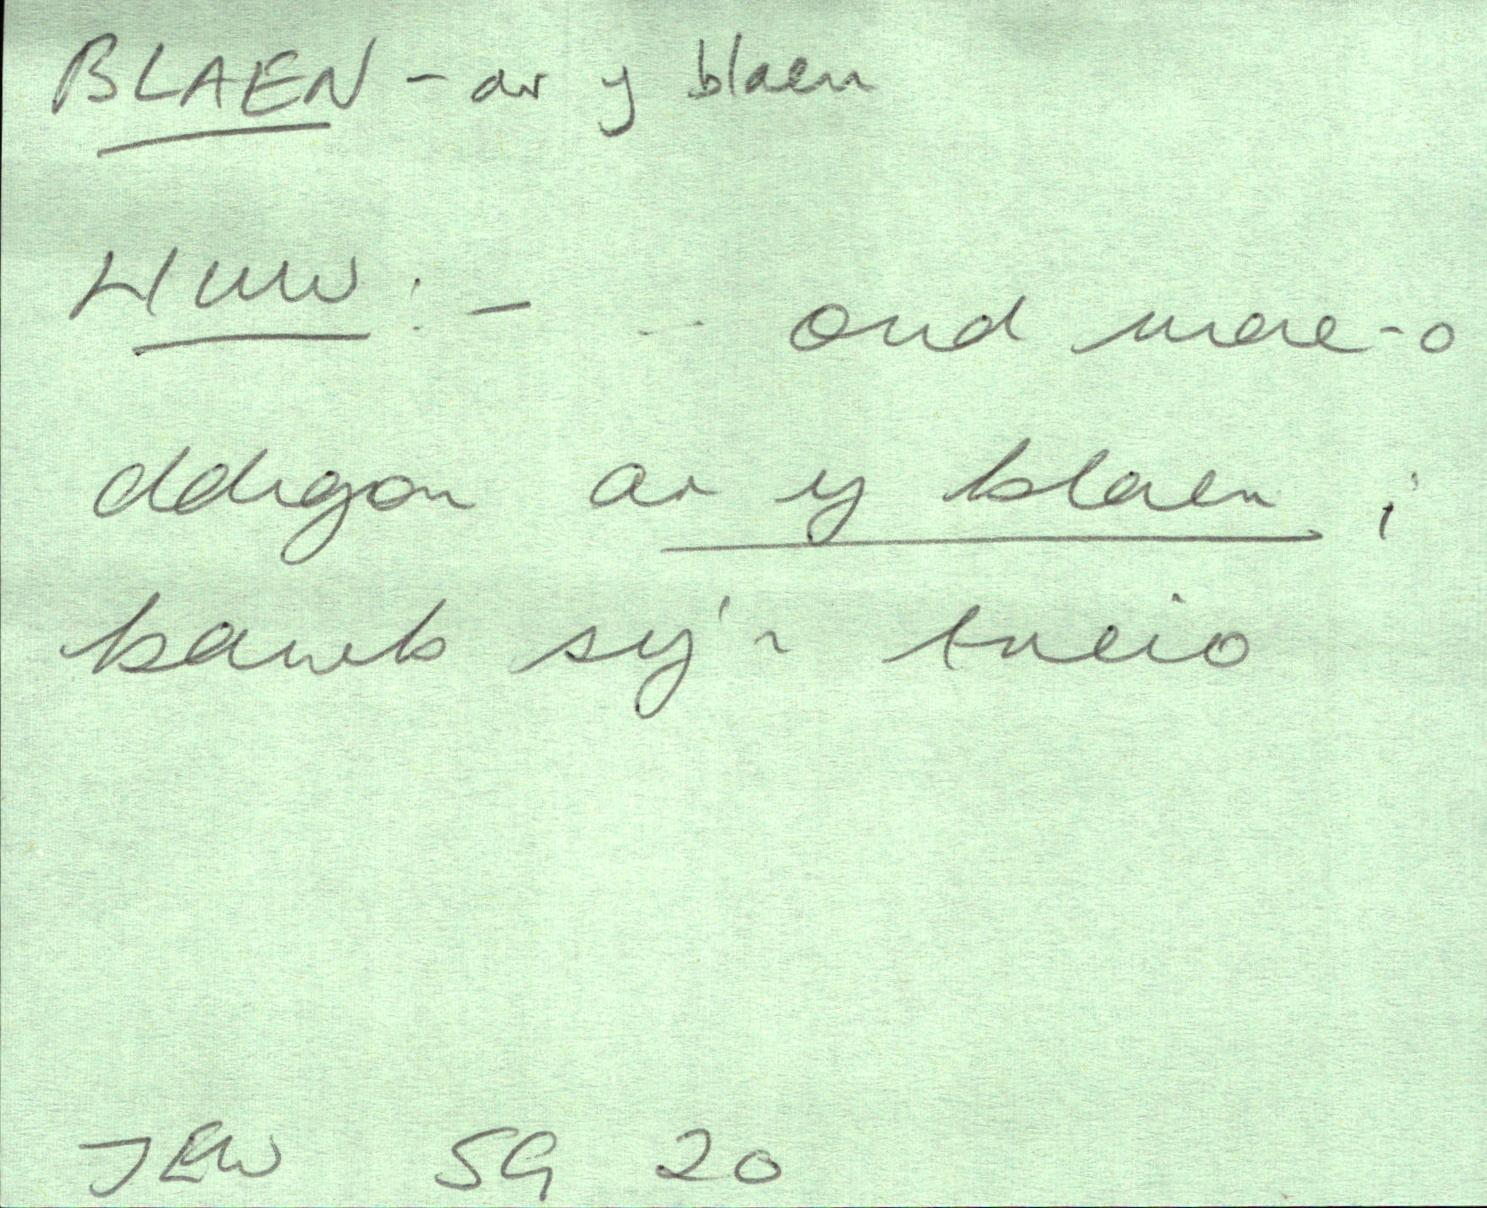 BLAEN - ar y blaen
HUW :- .. ond mae-o
ddigon ar y blaen i
bawb sy'n treio
JEW SG 20